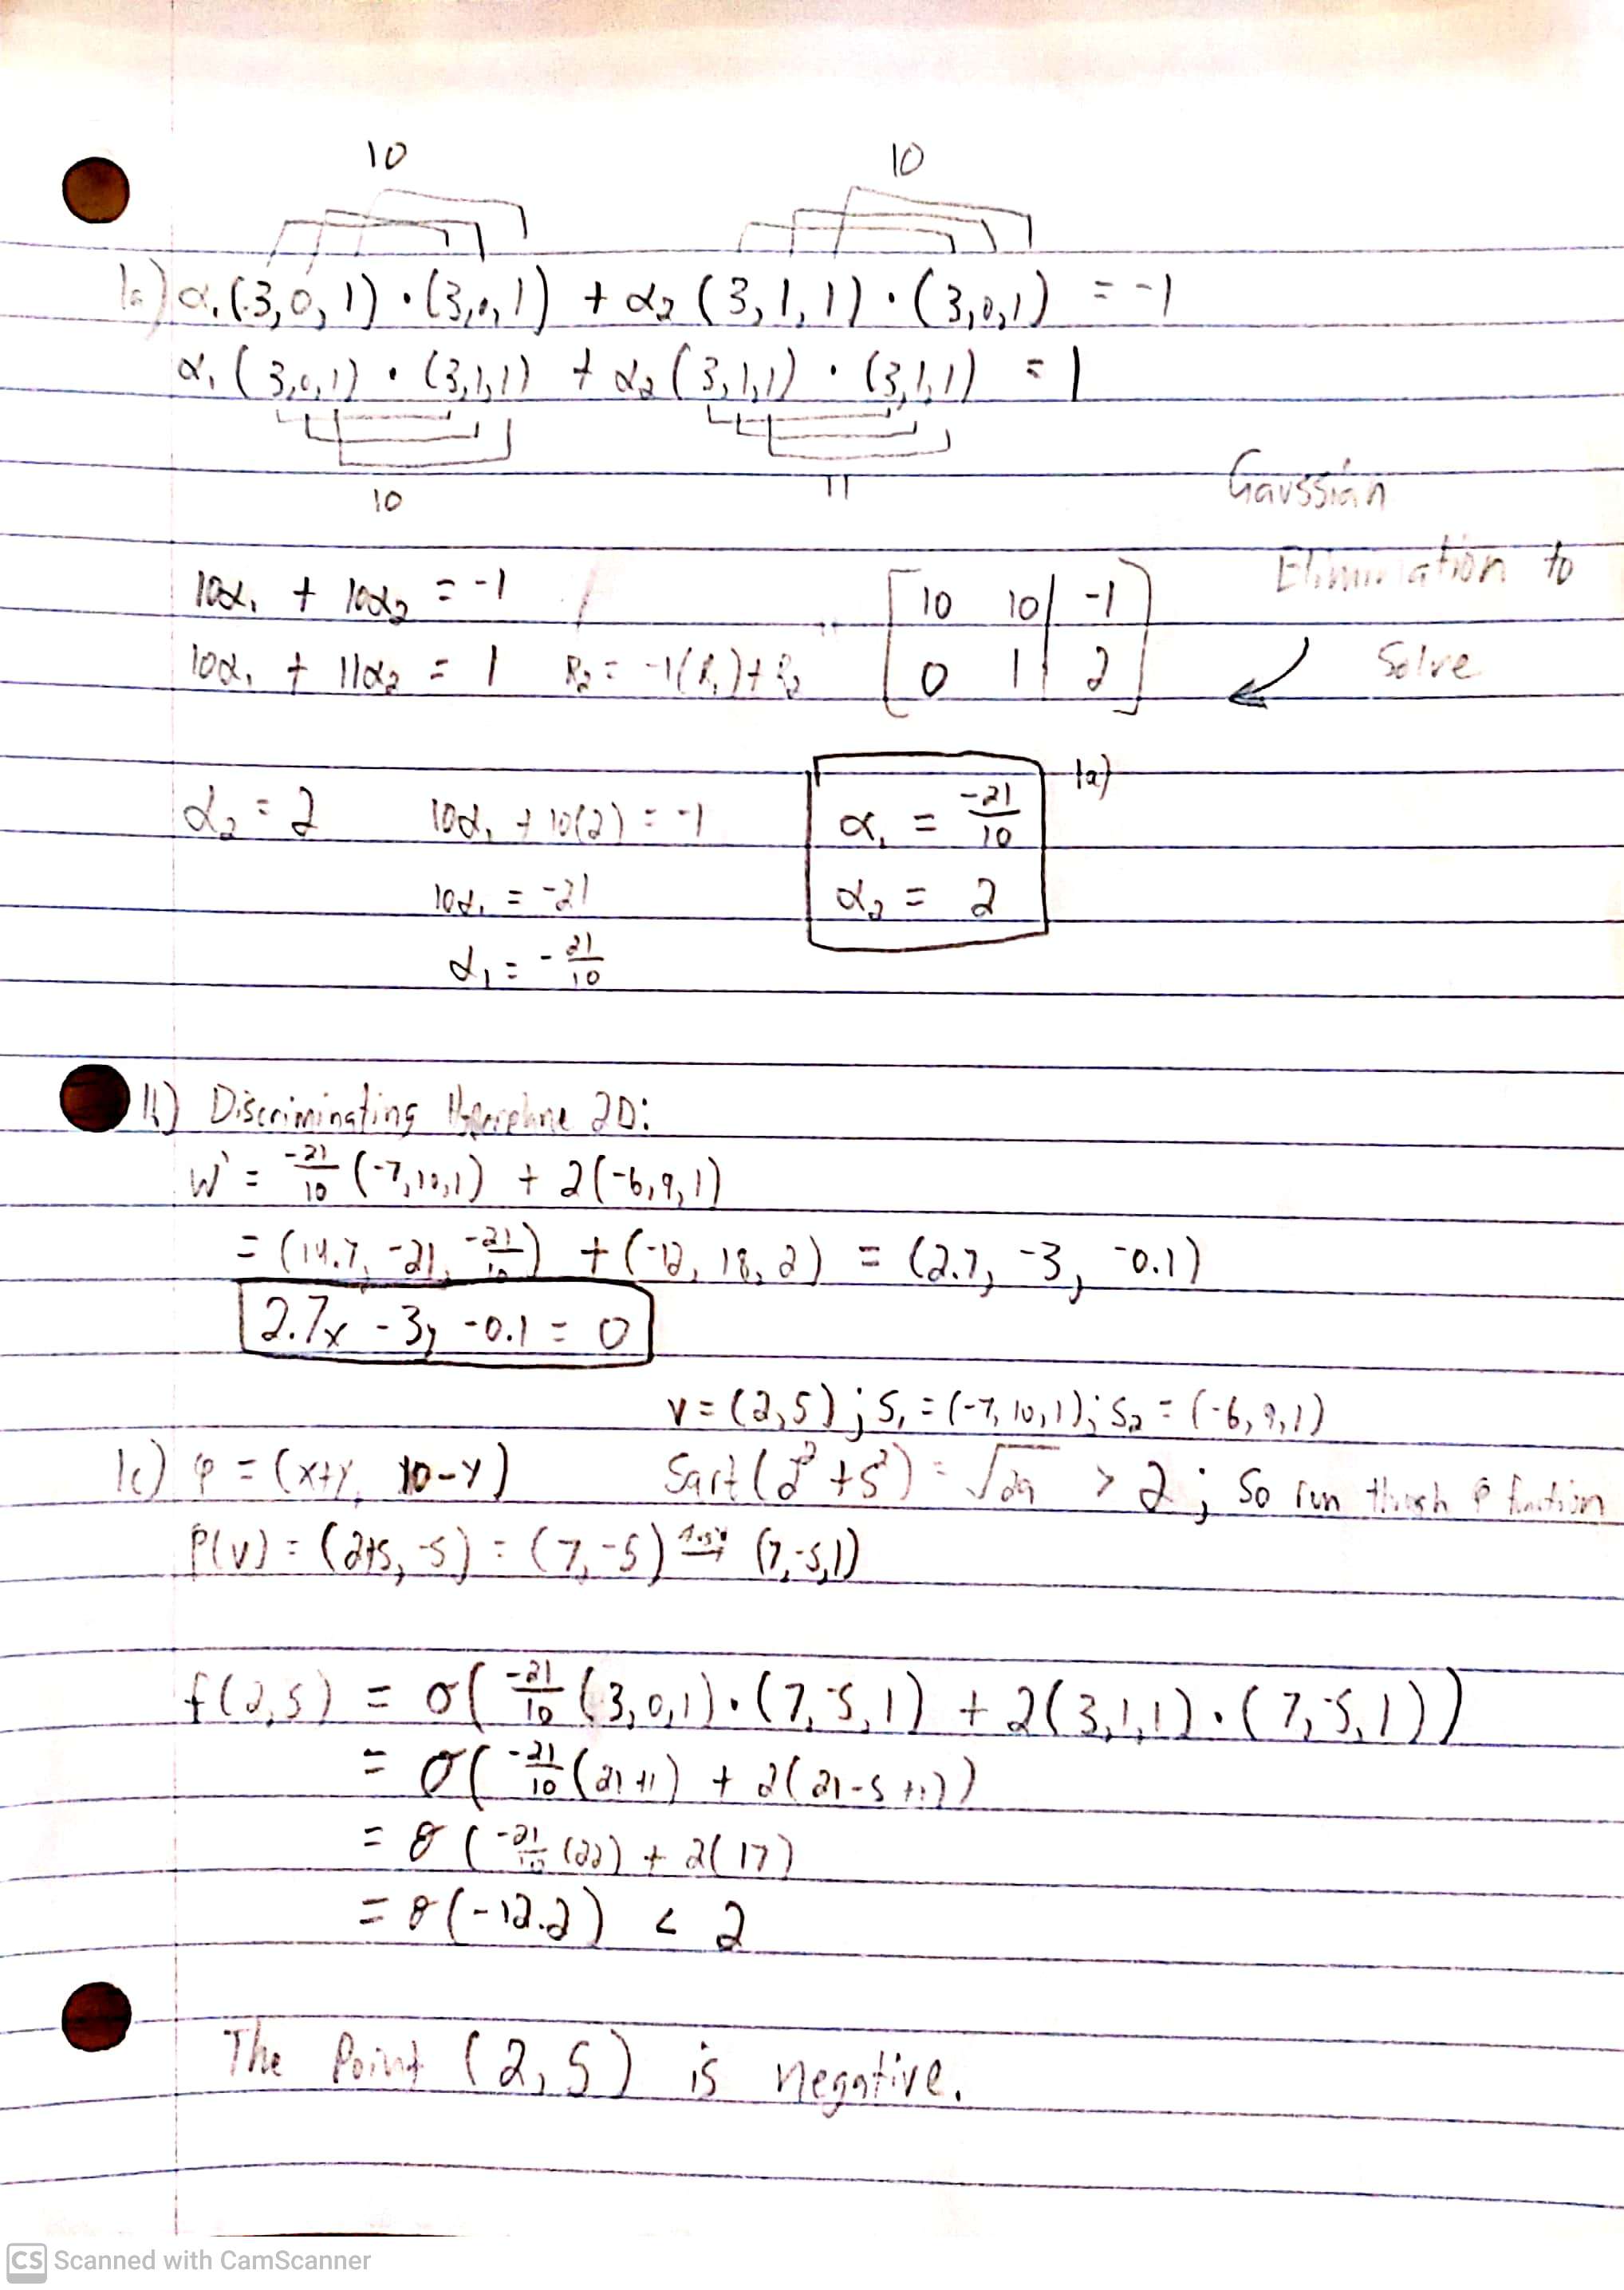 10 10
1a) α₁(3,0,1)·(3,0,1) + α₂(3,1,1)·(3,0,1) = -1
α₁(3,0,1)·(3,1,1) + α₂(3,1,1)·(3,1,1) = 1
10 11
Gaussian
Elimination to
Solve
10α₁ + 10α₂ = -1 [10 10 | -1]
10α₁ + 11α₂ = 1 R₂ = -1(R₁)+R₂ [0 1 | 2]
α₂ = 2 10α₁ + 10(2) = -1 α₁ = -21/10 1a)
10α₁ = -21 α₂ = 2
α₁ = -21/10
1b) Discriminating Hyperplane 2D:
w̃ = -21/10 (-7,10,1) + 2(-6,9,1)
= (14.7, -21, -21/10) + (-12, 18, 2) = (2.7, -3, -0.1)
2.7x - 3y - 0.1 = 0
v = (2,5); S₁ = (-7,10,1); S₂ = (-6,9,1)
1c) φ = (x+y, 10-y) Sqrt(2²+5²) = √29 > 2; So run through φ function
φ(v) = (2+5, -5) = (7,-5) → (7,-5,1)
f(2,5) = σ(-21/10 (3,0,1)·(7,-5,1) + 2(3,1,1)·(7,-5,1))
= σ(-21/10 (21+1) + 2(21-5+1))
= σ(-21/10 (22) + 2(17)
= σ(-12.2) < 2
The Point (2,5) is negative.
CS Scanned with CamScanner